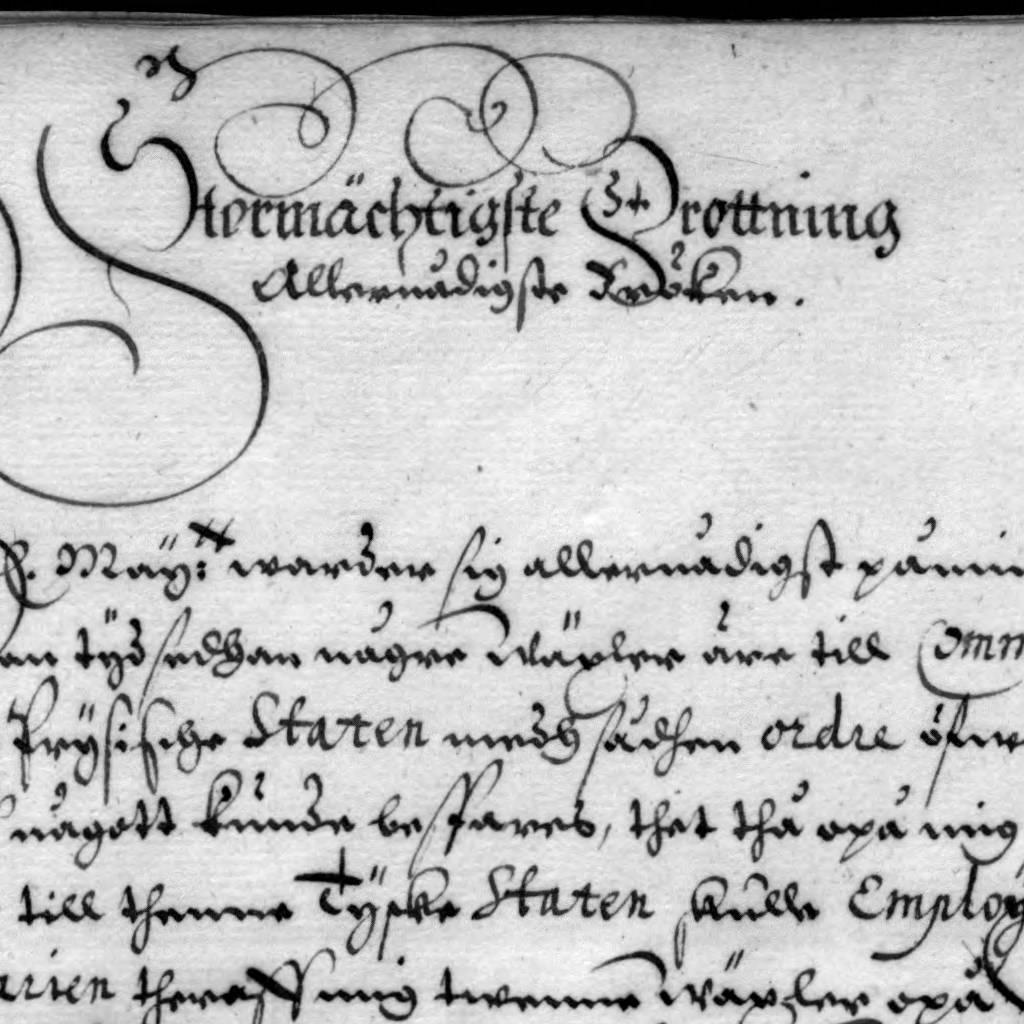 Stormächtigste Drottning
Allernådigste Fröken.
E. Maÿ:tt warder sig allernådigst påmin
an tÿd sedhan någre Wäxler äre till Comm
Prÿsische Staten medh sådhen ordre öfwe
någott kunde beffares, thet thå opå mig
till thenne Tÿske Staten skulle Employ
arien theraff mig twenne Wäxler opå